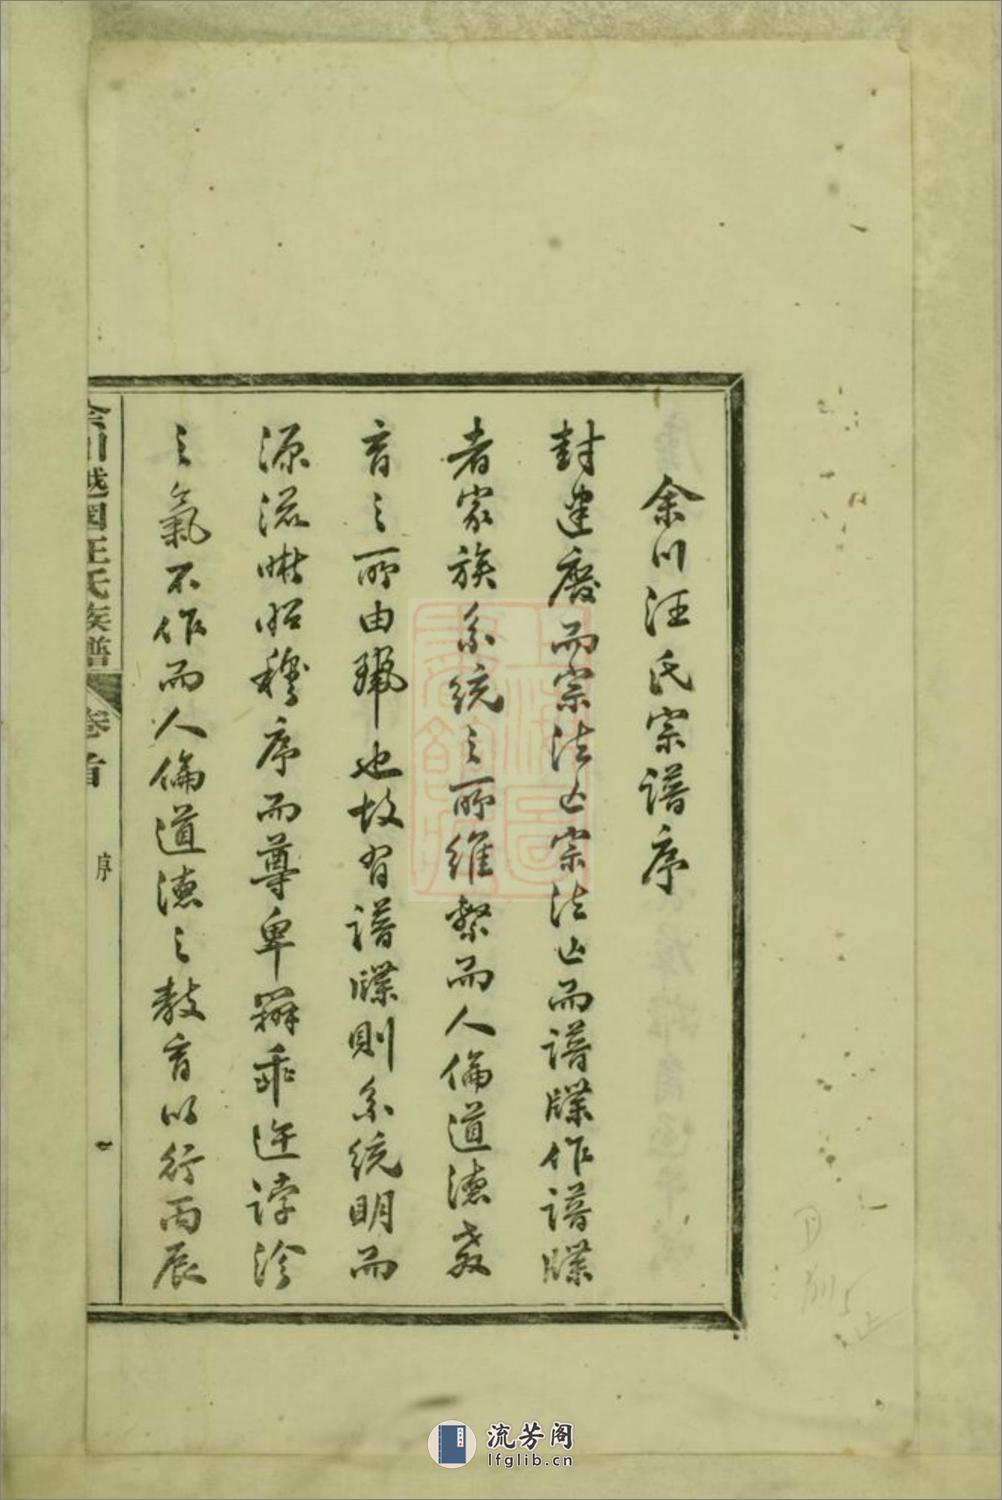 余川汪氏宗譜序
封建廢而宗法亡宗法亡而譜牒作譜牒
者家族系統之所維繫而人倫道德教
育之所由瑰也故有譜牒則系統明而
源流晰昭穆序而尊卑辨乖迕誖沴
之氣不作而人倫道德之教育以行丙辰
余川越国汪氏族譜 卷首 序 一
流芳阁
lfglib.cn